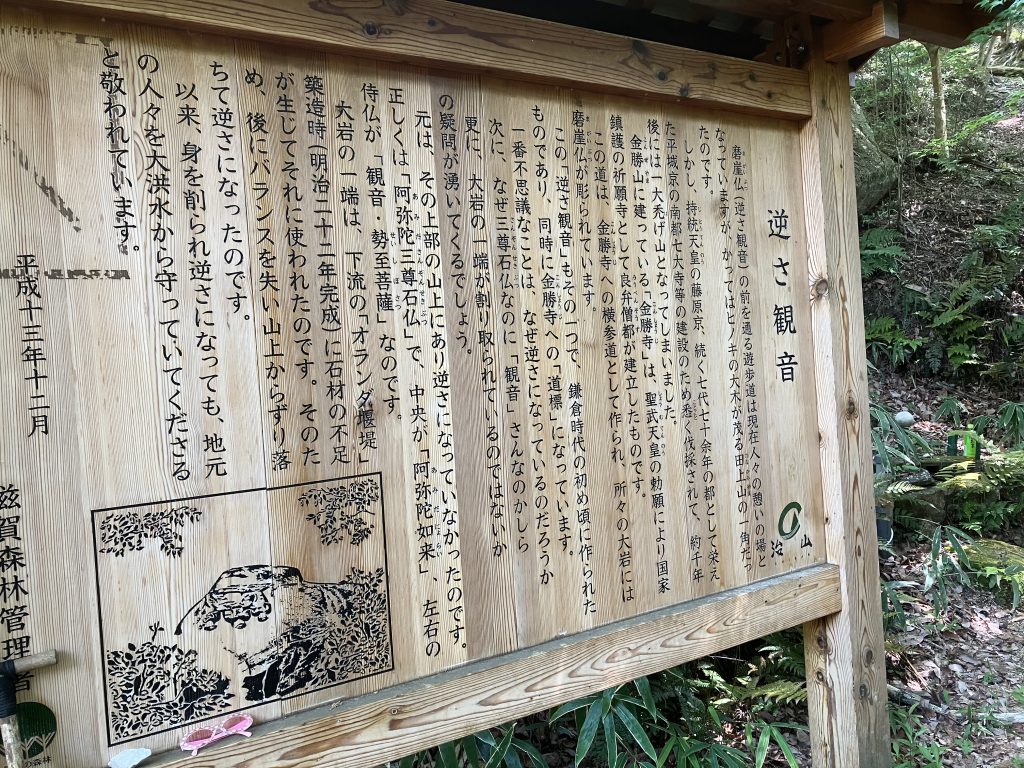 逆さ観音
磨崖仏(逆さ観音)の前を通る遊歩道は現在人々の憩いの場と
なっていますが、かつてはヒノキの大木が茂る田上山の一角だっ
たのです。
しかし、持統天皇の藤原京、続く七代七十余年の都として栄え
た平城京の南都七大寺等の建設のため悉く伐採されて、約千年
後には大禿げ山となってしまいました。
金勝山に建っている「金勝寺」は、聖武天皇の勅願により国家
鎮護の祈願寺として良弁僧都が建立したものです。
この道は、金勝寺への横参道として作られ、所々の大岩には
磨崖仏が彫られています。
この「逆さ観音」もその一つで、鎌倉時代の初め頃に作られた
ものであり、同時に金勝寺への「道標」になっています。
一番不思議なことは、なぜ逆さになっているのだろうか
次に、なぜ三尊石仏なのに「観音」さんなのかしら
更に、大岩の一端が割り取られているのではないか
の疑問が湧いてくるでしょう。
元は、その上部の山上にあり逆さになっていなかったのです。
正しくは「阿弥陀三尊石仏」で、中央が「阿弥陀如来」、左右の
侍仏が「観音・勢至菩薩」なのです。
大岩の一端は、下流の「オランダ堰堤」
築造時(明治二十二年完成)に石材の不足
が生じてそれに使われたのです。そのた
め、後にバランスを失い山上からずり落
ちて逆さになったのです。
以来、身を削られ逆さになっても、地元
の人々を大洪水から守っていてくださる
と敬われています。
平成十三年十二月
滋賀森林管理署
治山
の森林